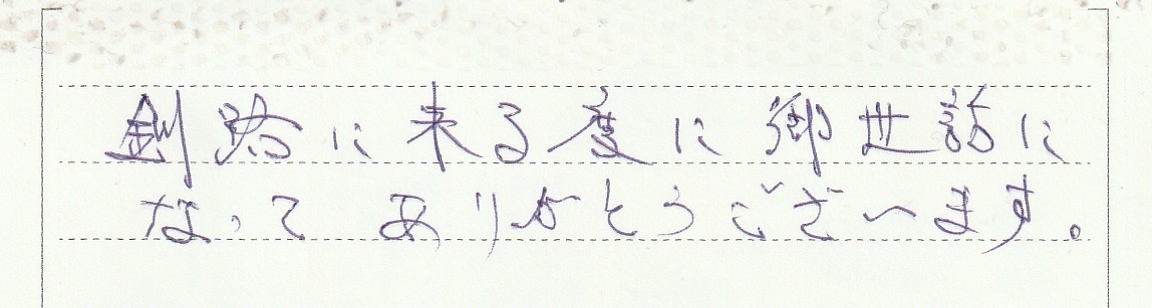 釧路に来る度に御世話に
なって ありがとうございます。